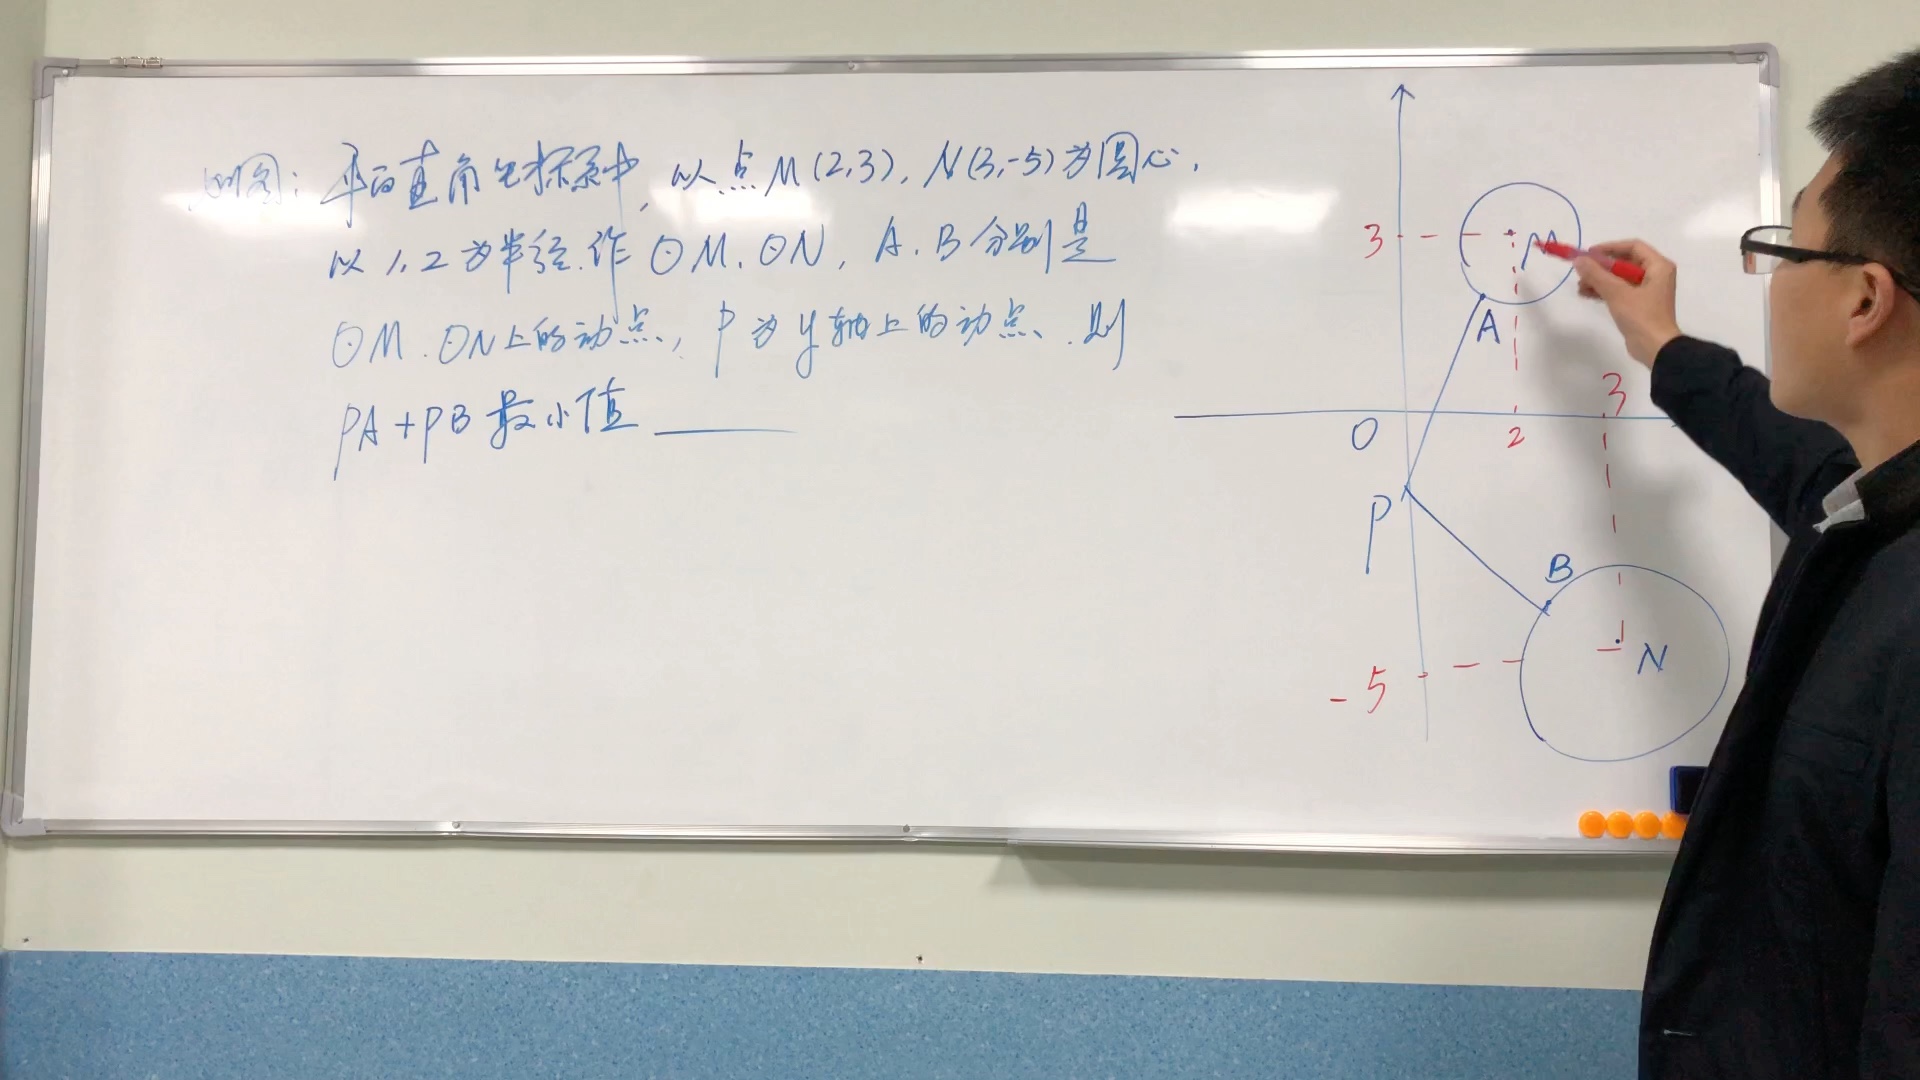 如图：平面直角坐标系中，以点M(2,3)，N(3,-5)为圆心，
以1，2为半径作⊙M、⊙N，A、B分别是
⊙M、⊙N上的动点，P为y轴上的动点、则
PA+PB最小值
3
M
A
3
O
2
P
B
N
-5